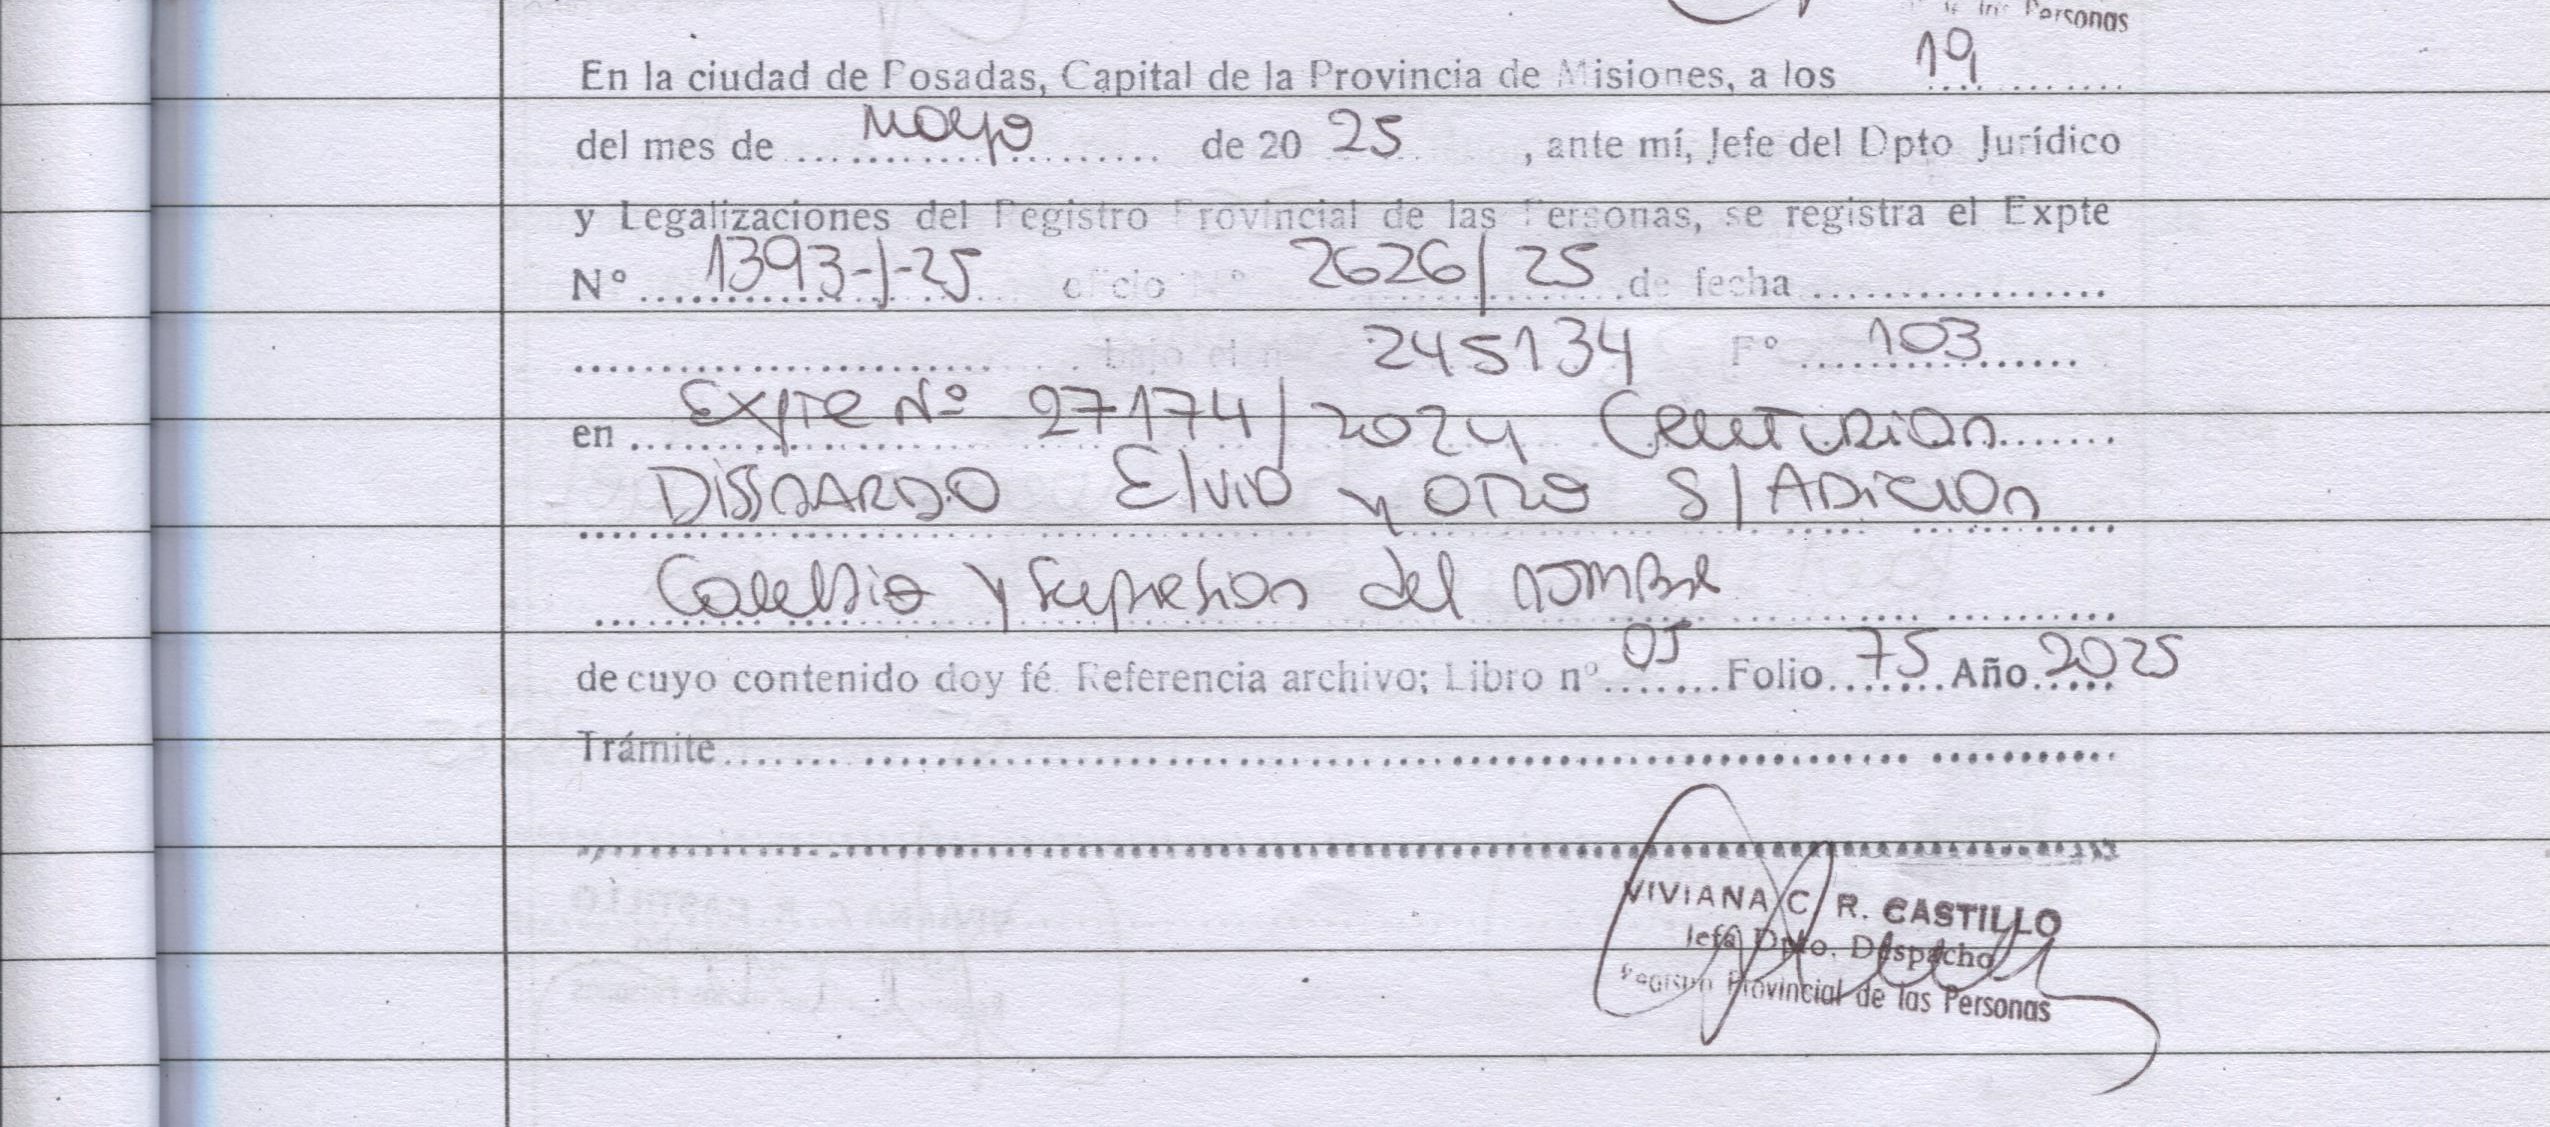 de las Personas
En la ciudad de Posadas, Capital de la Provincia de Misiones, a los 19
del mes de Mayo de 20 25, ante mí, Jefe del Dpto Jurídico
y Legalizaciones del Registro Provincial de las Personas, se registra el Expte
Nº 1393-J-25 oficio Nº 2626/25 de fecha
bajo el nº 245134 Fº 103
en Expte Nº 27174/2024 Centurion
Elvio y otro S/ Adicion
Cambio y Supresion del nombre
de cuyo contenido doy fé Referencia archivo; Libro nº 05 Folio 75 Año 2025
Trámite
VIVIANA C. R. CASTILLO
Jefa Dpto. Despacho
Registro Provincial de las Personas